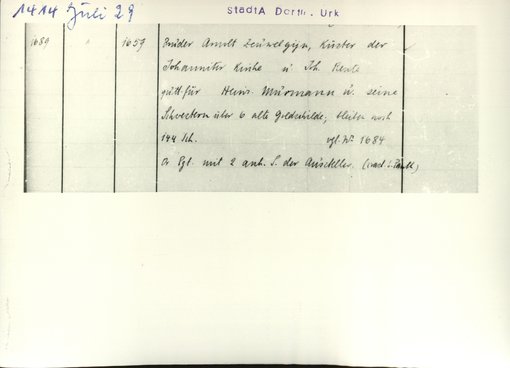 1414 Juli 29
StadtA Dortm. Urk
1689 1659 Bruder Arndt, Küster der
Johanniter Kirche u. Joh.
quitt. für Heinr. Mürmann u. seine
Schwestern über 6 alte Goldschilde, bleiben noch
144 Sch. vgl. Nº 1684
Or Pgt. mit 2 anh. S. der Aussteller.